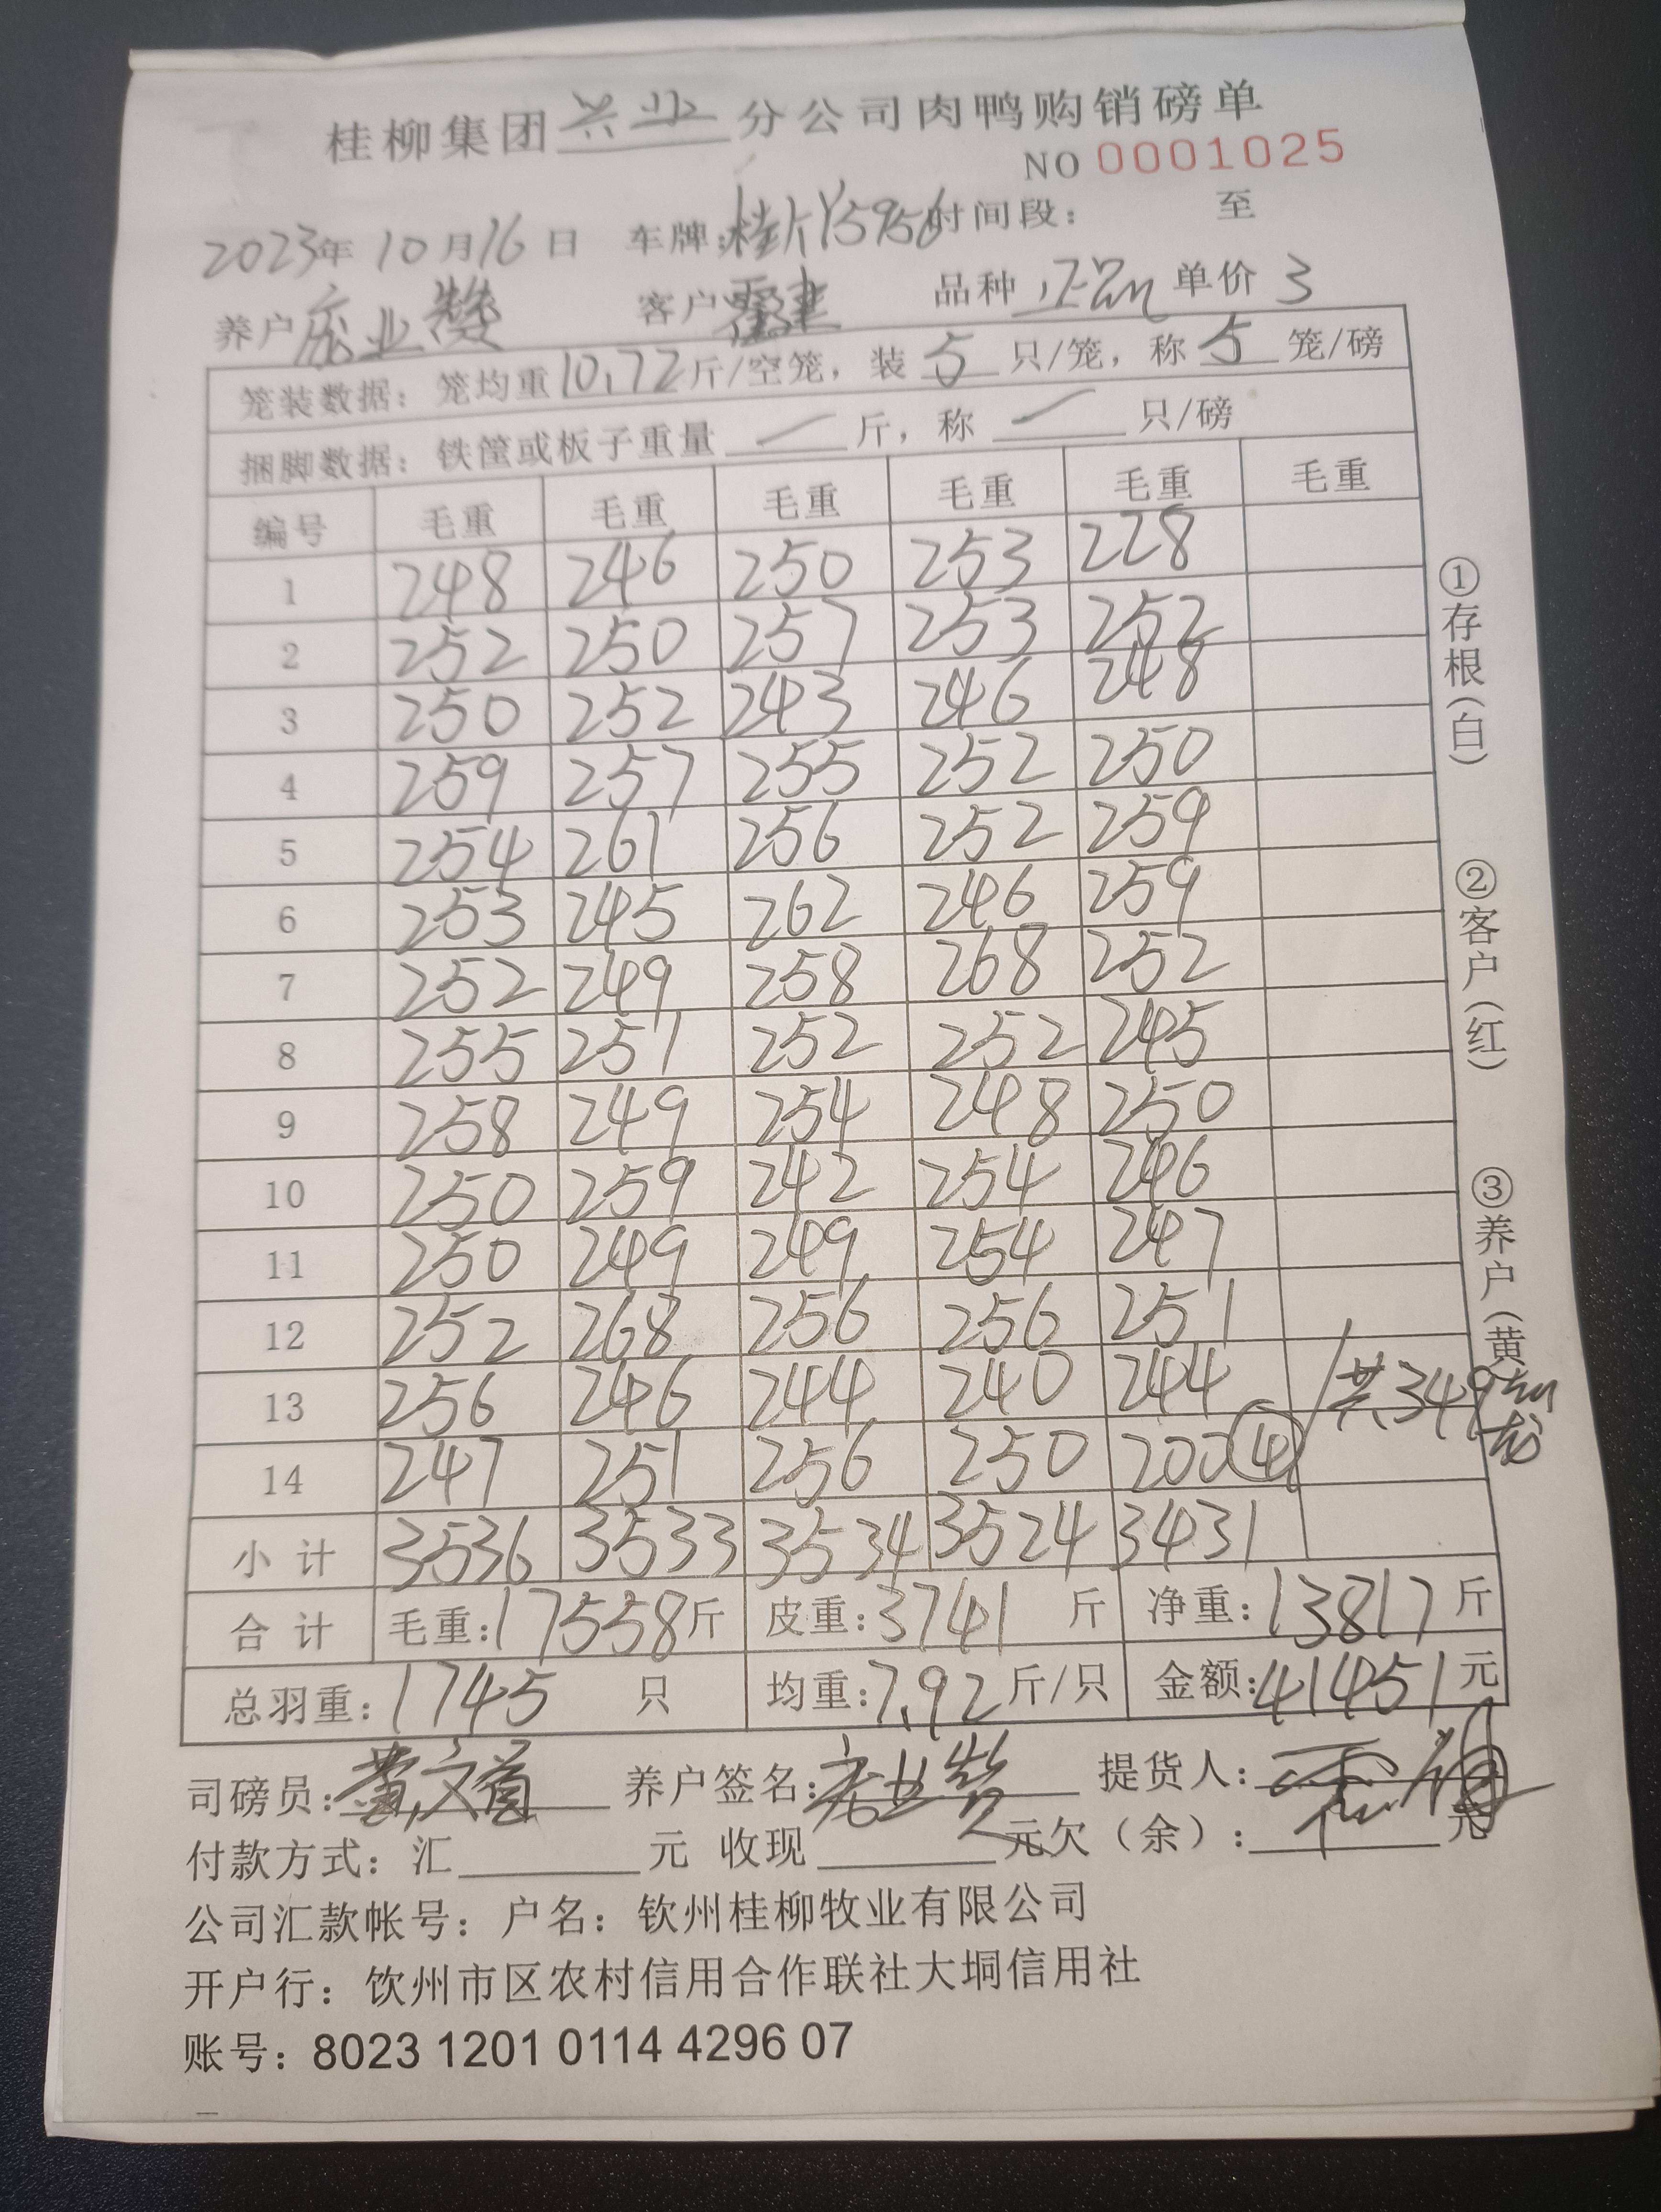 桂柳集团兴业分公司肉鸭购销磅单
NO 0001025
2023年10月16日 车牌:桂AY5956 时间段: 至
养户 庞业赞 客户 品种 正品 单价 3
笼装数据: 笼均重10.72斤/空笼, 装 5 只/笼, 称 5 笼/磅
捆脚数据: 铁筐或板子重量 / 斤, 称 / 只/磅
编号 毛重 毛重 毛重 毛重 毛重 毛重
1 248 246 250 253 228
2 252 250 257 253 252
3 250 252 243 246 248
4 259 257 255 252 250
5 254 261 256 252 259
6 253 245 262 246 259
7 252 249 258 268 252
8 255 251 252 252 245
9 258 249 254 248 250
10 250 259 242 254 246
11 250 249 249 254 247
12 252 268 256 256 251
13 256 246 244 240 244
14 247 251 256 250 200 ④ 共349笼
小计 3536 3533 3534 3524 3431
合计 毛重:17558斤 皮重:3741 斤 净重:13817斤
总羽重:1745 只 均重:7.92斤/只 金额:41451元
司磅员: 养户签名:庞业赞 提货人:
付款方式: 汇 元 收现 元欠(余): 元
公司汇款帐号: 户名: 钦州桂柳牧业有限公司
开户行: 钦州市区农村信用合作联社大垌信用社
账号: 8023 1201 0114 4296 07
①存根(白) ②客户(红) ③养户(黄)